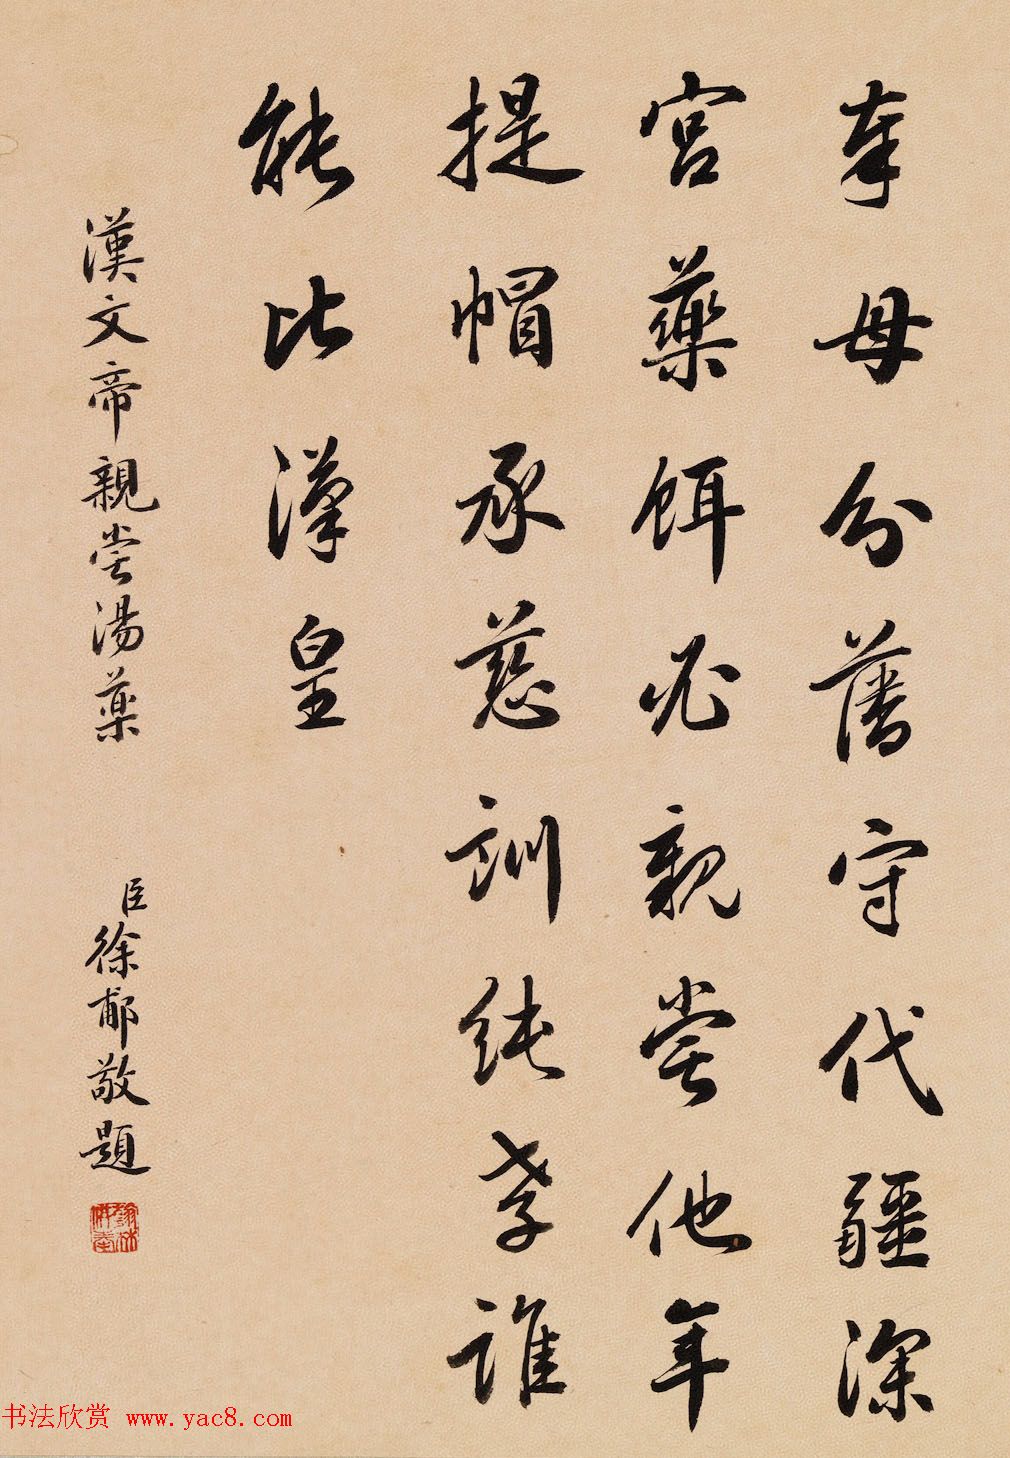 奉母分藩守代疆深
宮藥餌必親嘗他年
提帽承慈訓純孝誰
能比漢皇
漢文帝親嘗湯藥
臣徐郙敬題
书法欣赏 www.yac8.com